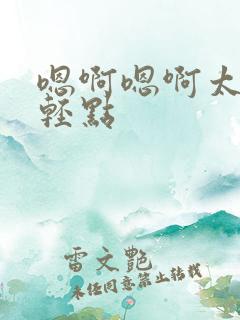 嗯啊嗯啊太
輕點
雷文艷
未经同意禁止转载